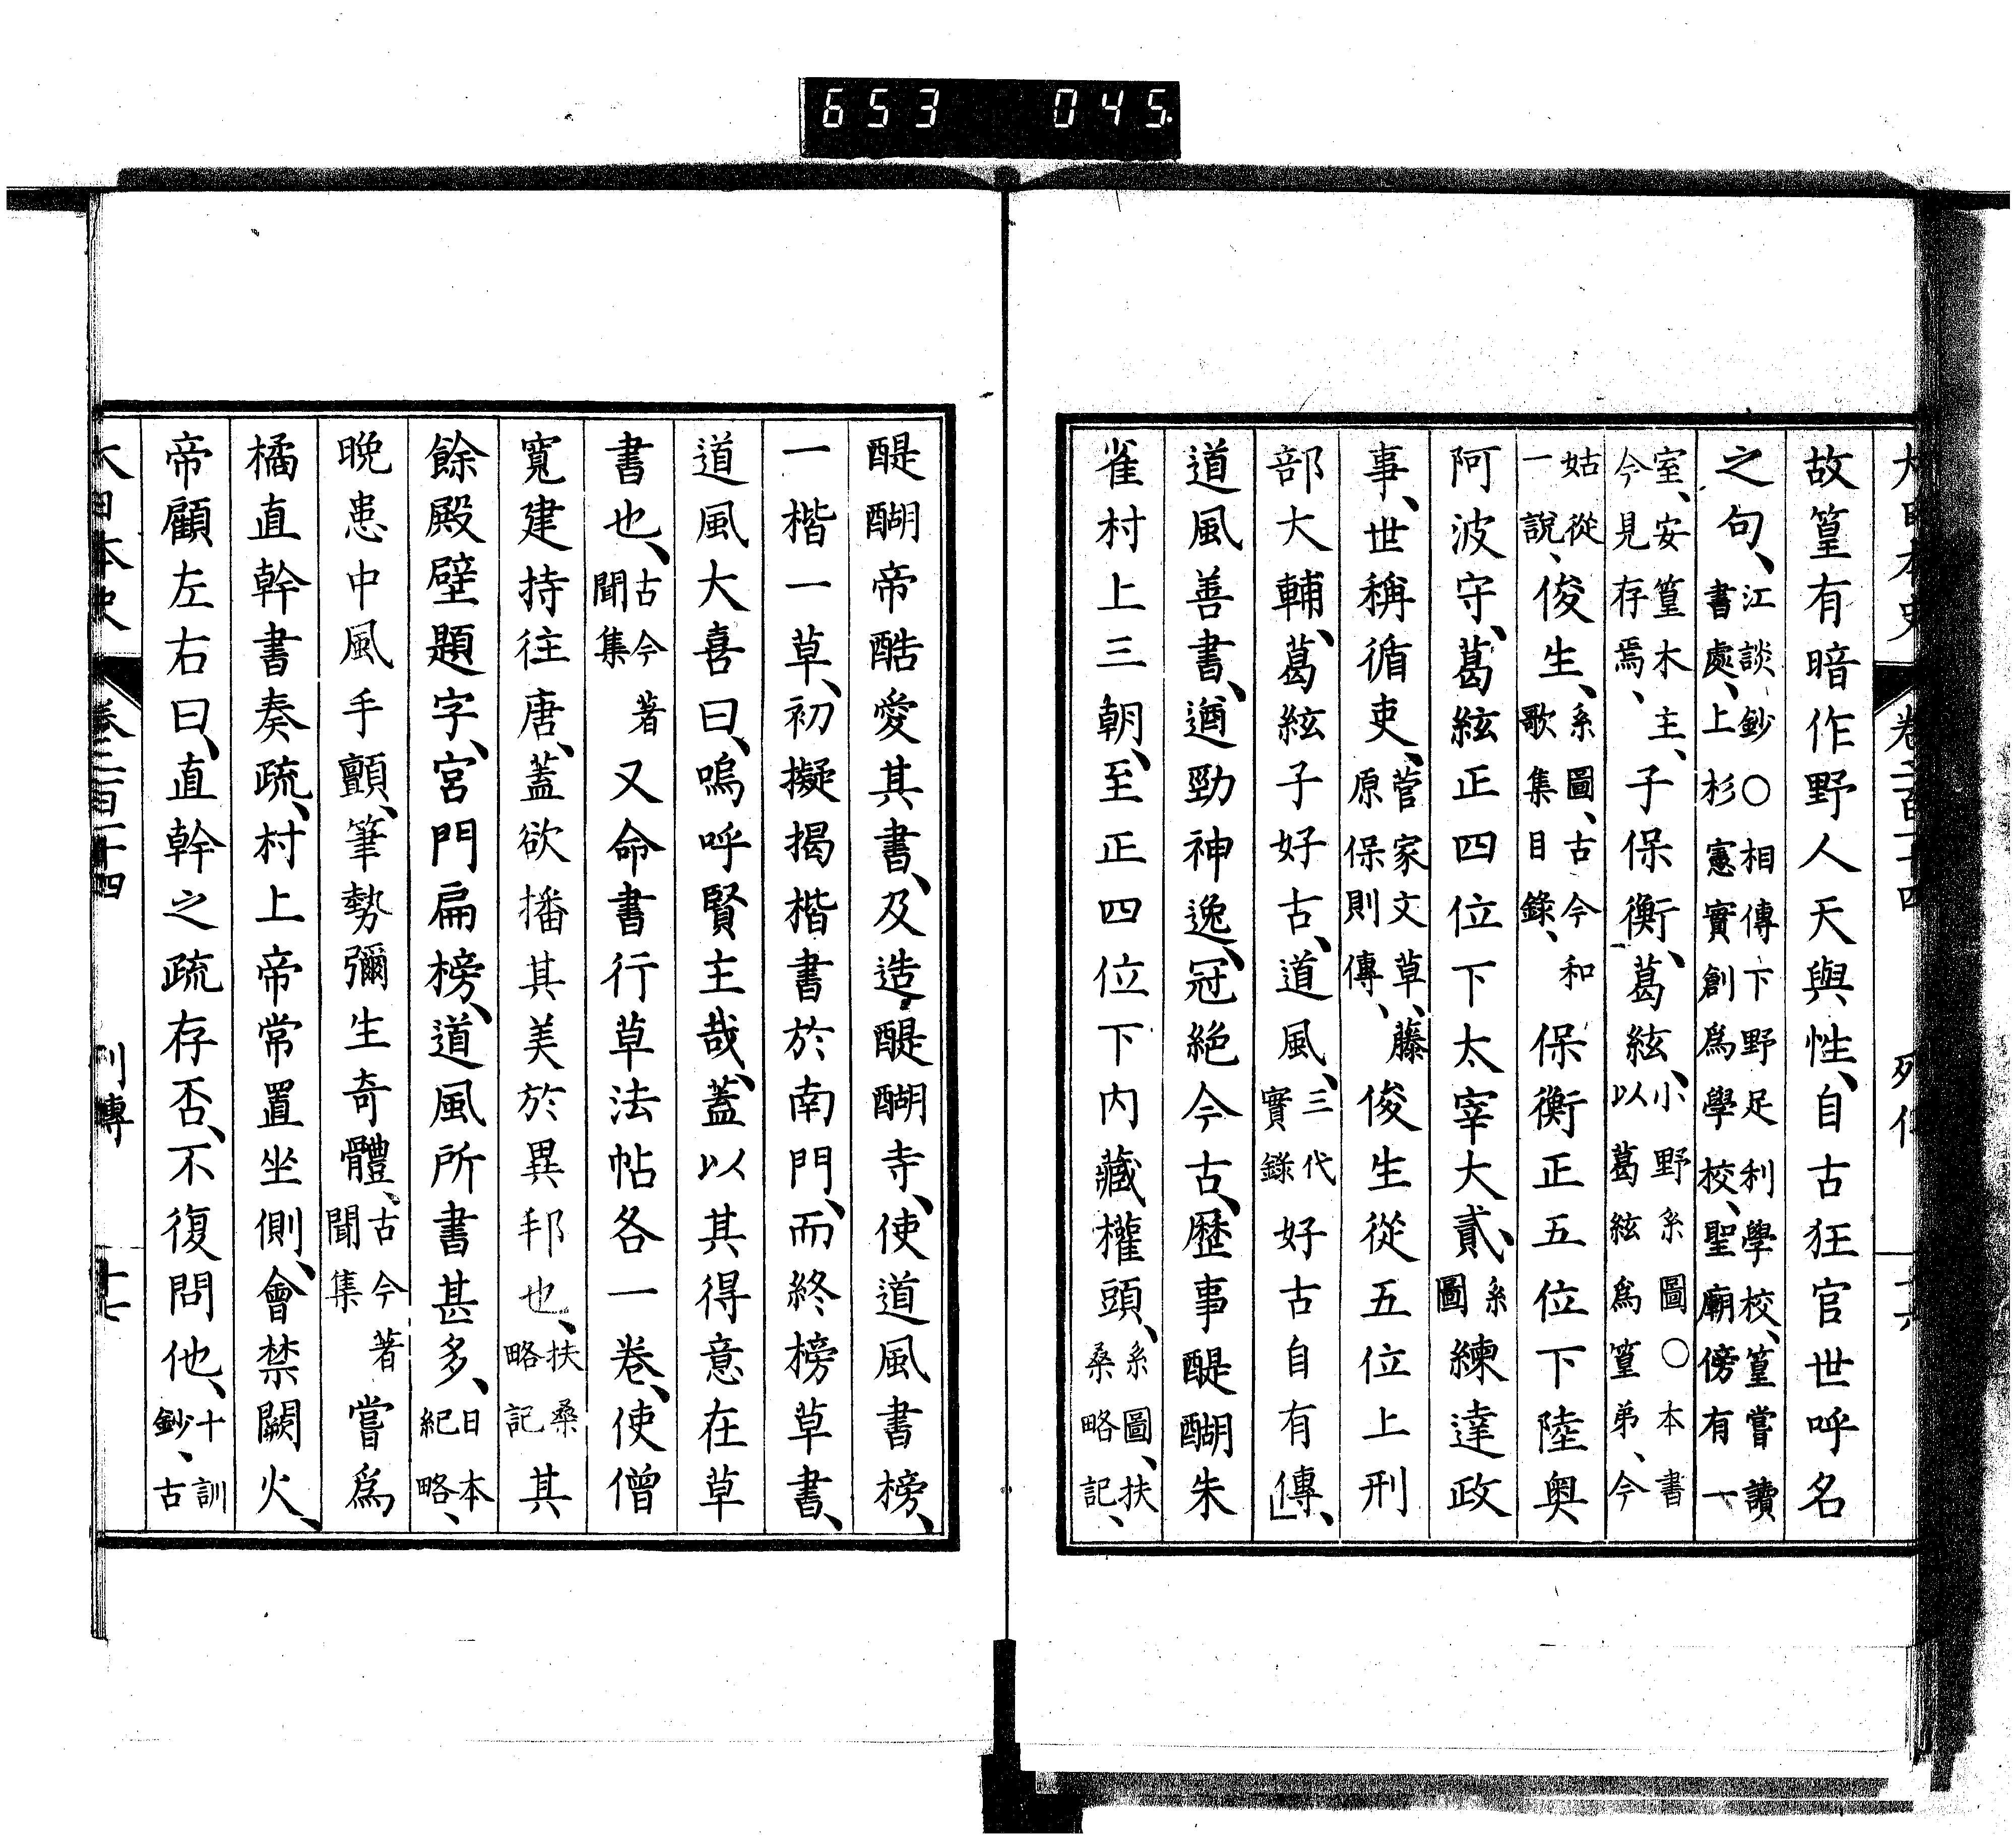 653 045
大日本史 卷二百十四 列傳 十六
故篁有暗作野人天與性、自古狂官世呼名
之句、江談鈔〇相傳下野足利學校、篁嘗讀書處、上杉憲實創爲學校、聖廟傍有一
室、安篁木主、今見存焉、子保衡、葛絃、小野系圖〇本書以葛絃爲篁弟、今
姑從一說、俊生、系圖、古今和歌集目錄、保衡正五位下陸奧
阿波守、葛絃正四位下太宰大貳、系圖練達政
事、世稱循吏、菅家文草、藤原保則傳、俊生從五位上刑
部大輔、葛絃子好古、道風、三代實錄好古自有傳、
道風善書、遒勁神逸、冠絕今古、歷事醍醐朱
雀村上三朝、至正四位下內藏權頭、系圖、扶桑略記、
醍醐帝酷愛其書、及造醍醐寺、使道風書榜、
一楷一草、初擬揭楷書於南門、而終榜草書、
道風大喜曰、嗚呼賢主哉、蓋以其得意在草
書也、古今著聞集又命書行草法帖各一卷、使僧
寬建持往唐、蓋欲播其美於異邦也、扶桑略記其
餘殿壁題字、宮門扁榜、道風所書甚多、日本紀略、
晚患中風手顫、筆勢彌生奇體、古今著聞集嘗爲
橘直幹書奏疏、村上帝常置坐側、會禁闕火、
帝顧左右曰、直幹之疏存否、不復問他、十訓鈔、古
大日本史 卷二百十四 列傳 十七